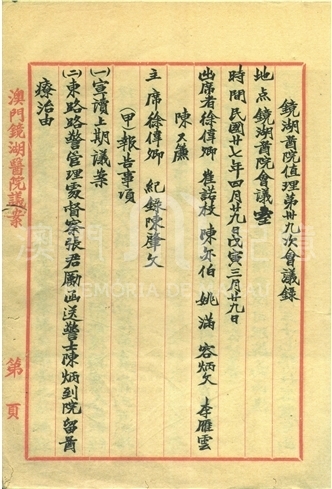 鏡湖醫院值理第卅九次會議錄
地点鏡湖醫院會議堂
時間民國廿七年四月廿九日戊寅三月廿九日
出席者徐偉卿 崔諾枝 陳亦伯 姚滿 容炳文 李雁雲
陳久廉
主席徐偉卿 紀錄陳肇文
(甲)報告事項
(一)宣讀上期議案
(二)東路路警管理處督察張君勵函送警士陳炳到院留醫
療治由
澳門鏡湖醫院議案
第 頁
MEMÓRIA DE MACAU